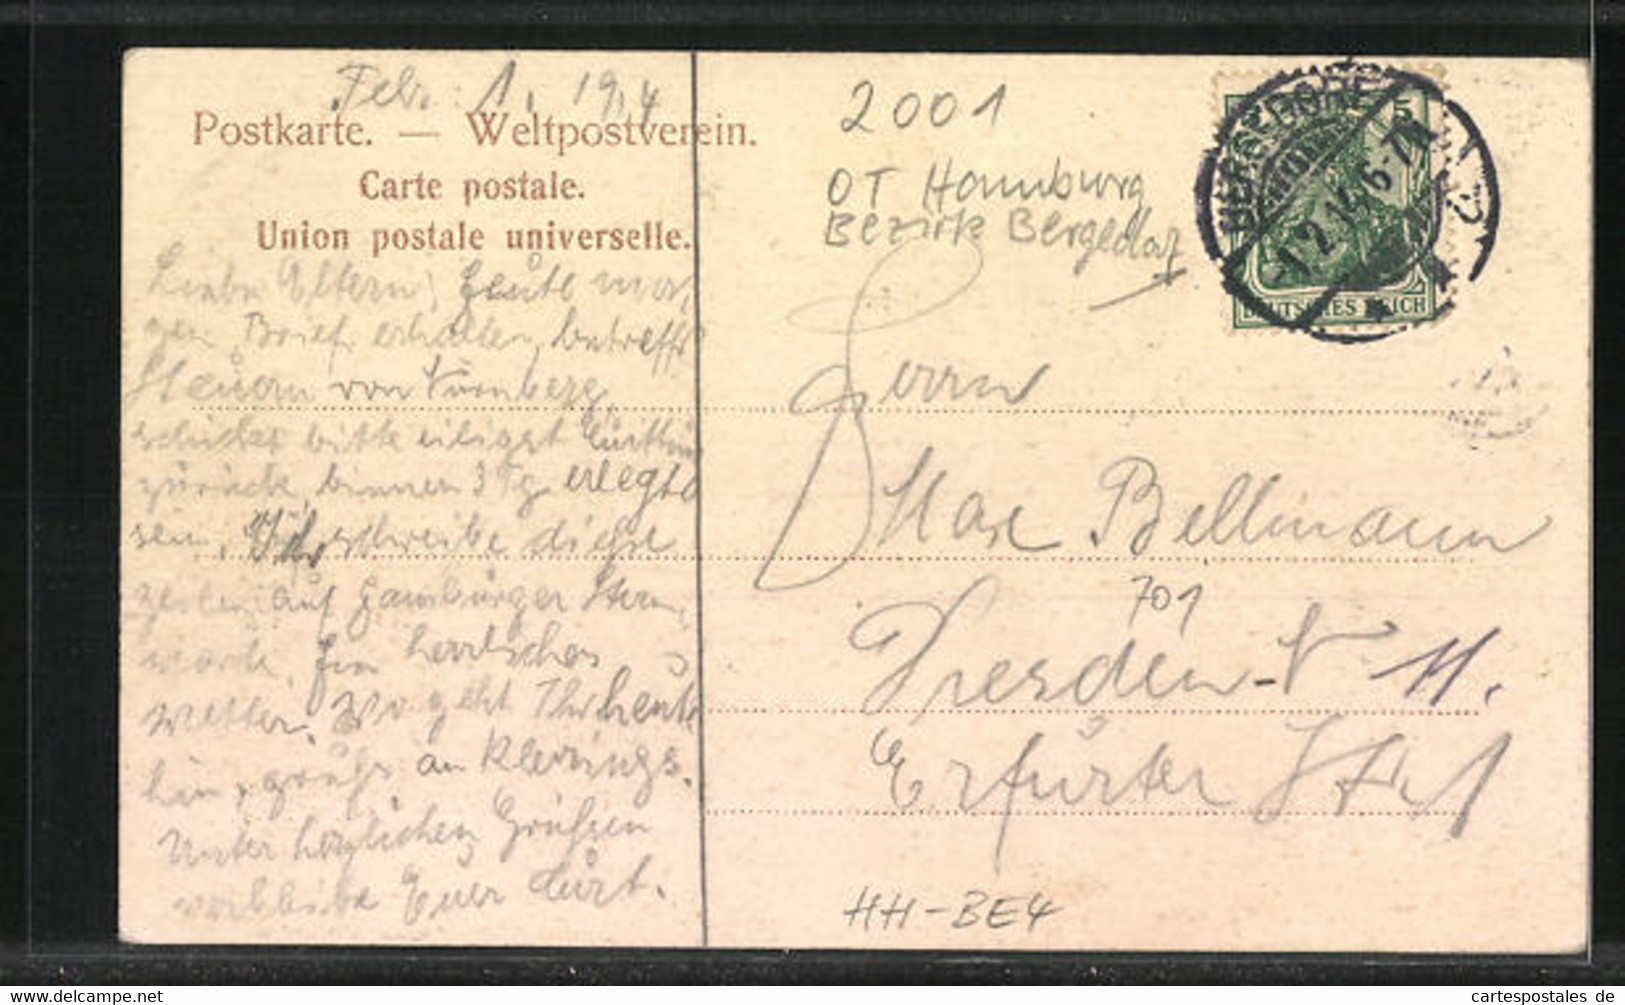 Febr. 1. 1914
Postkarte. — Weltpostverein.
Carte postale.
Union postale universelle.
Liebe Eltern, heute mor-
gen Brief erhalten, betreffs
Steuern von Nürnberg,
schicket bitte eiligst
zurück, binnen 3 Tg. erlegt
sein. Ich schreibe diese
Zeilen auf Hamburger Stern-
warte. Ein herrliches
Wetter. Wo geht Ihr heute
hin, grüßt an Klerings.
Unter herzlichen Grüßen
verbleibe Euer Curt.
2001
OT Hamburg
Bezirk Bergedorf
BERGEDORF
1.2.14. 6-7N
5
DEUTSCHES REICH
Herrn
Max Bellmann
701
Dresden-N 11.
Erfurter Str 1
HH-BE4
cartespostales de